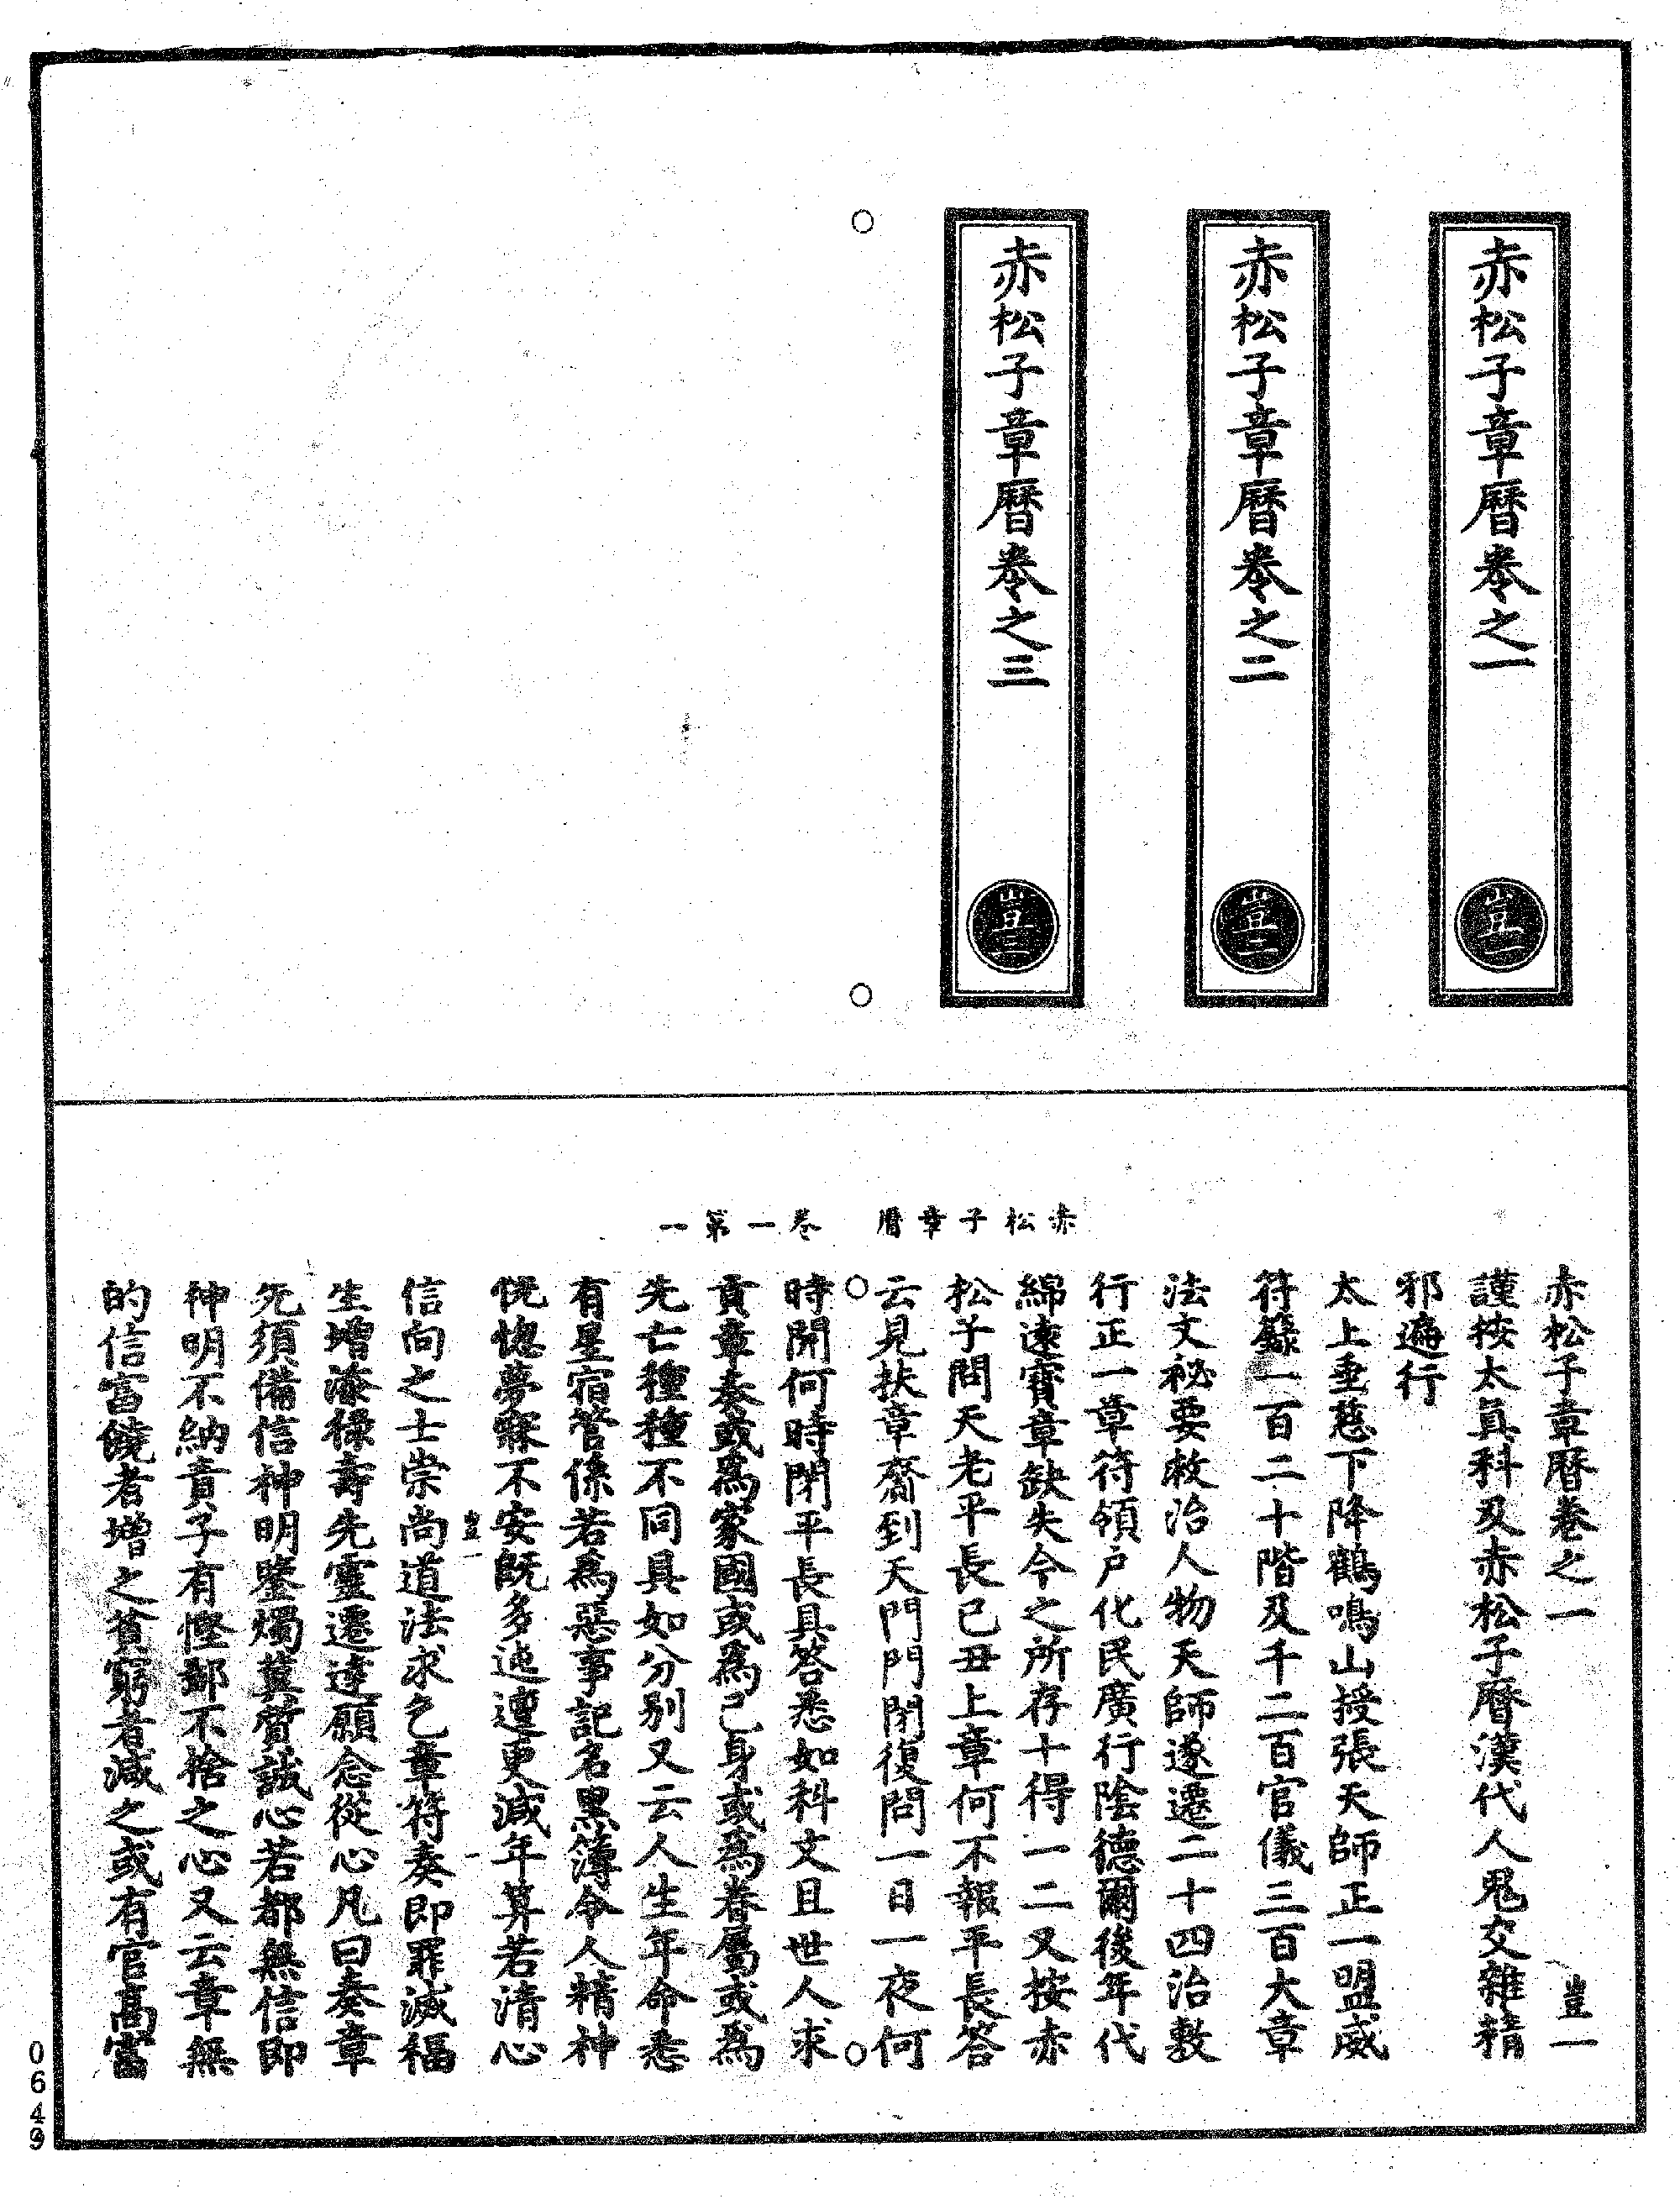 赤松子章曆卷之一
豈一
赤松子章曆卷之二
豈二
赤松子章曆卷之三
豈三
赤松子章曆 卷一第一
赤松子章曆卷之一 豈一
謹按太真科及赤松子曆漢代人鬼交雜精
邪遍行
太上垂慈下降鶴鳴山授張天師正一盟威
符籙一百二十階及千二百官儀三百大章
法文祕要救治人物天師遂遷二十四治敷
行正一章符領户化民廣行陰德爾後年代
綿遠寶章缺失今之所存十得一二又按赤
松子問天老平長已丑上章何不報平長答
云見扶章齎到天門門閉復問一日一夜何
時開何時閉平長具答悉如科文且世人求
貢章奏或為家國或為己身或為眷屬或為
先亡種種不同具如分別又云人生年命悉
有星宿管係若為惡事記名黑簿令人精神
恍惚夢寐不安既多迍邅更減年算若清心
豈一 一
信向之士崇尚道法求乞章符奏即罪滅福
生增添祿壽先靈遷達願念從心凡曰奏章
先須備信神明鑒燭冀質誠心若都無信即
神明不納責子有慳鄙不捨之心又云章無
的信富饒者增之貧窮者減之或有官高富
0649